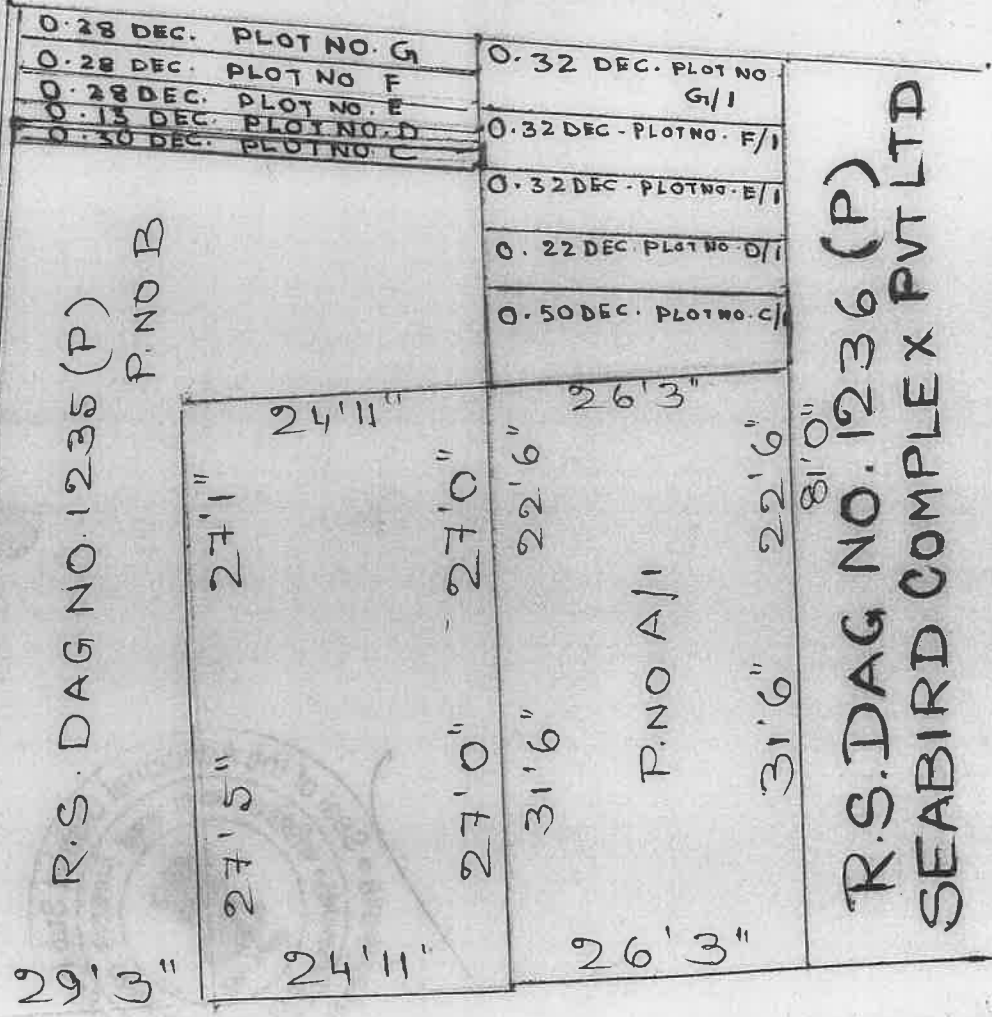 0.28 DEC. PLOT NO. G
0.28 DEC. PLOT NO F
0.28 DEC. PLOT NO. E
0.13 DEC. PLOT NO. D
0.30 DEC. PLOT NO. C
0.32 DEC. PLOT NO
G/1
0.32 DEC - PLOT NO. F/1
0.32 DEC - PLOT NO. E/1
0.22 DEC. PLOT NO. D/1
0.50 DEC. PLOT NO. C/1
R.S. DAG NO. 1235 (P)
P. NO B
24'11"
27'1"
27'0"
27'5"
27'0"
24'11'
29'3"
26'3"
22'6"
22'6"
P. NO A/1
31'6"
31'6"
26'3"
81'0"
R.S. DAG NO. 1236 (P)
SEABIRD COMPLEX PVT LTD